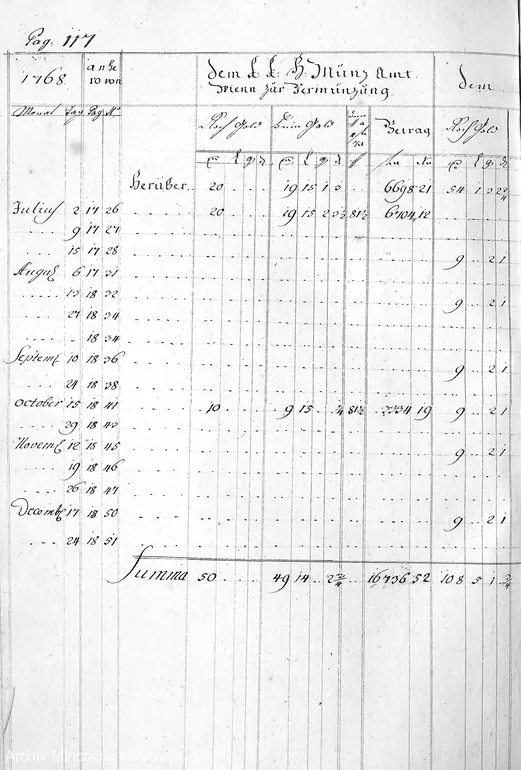 Pag. 117
1768
dem k. k. H: Münz Amt
Wienn zur Vermünzung
dem
Monat Tag Pag N
Roch Gold
Fein Gold
Betrag
Roch Gold
Herüber 20 19 15 1 3 6698 21 54 1 3 2 3/4
Julius 2 17 26 20 19 15 2 3½ 81½ 6704 12
9 17 27
15 17 28 9 2 1
August 6 17 31
13 18 32 9 2 1
27 18 34
18 34
Septemb 10 18 36 9 2 1
24 18 38
October 15 18 41 10 9 15 81½ 3334 19 9 2 1
29 18 43
Novemb 12 18 45 9 2 1
19 18 46
26 18 47
Decemb 17 18 50 9 2 1
24 18 51
Summa 50 49 14 2 3/4 16736 52 108 5 1 3/4